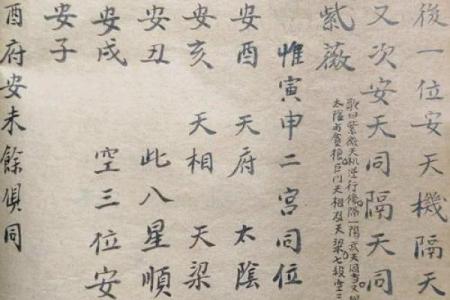 後一位安天機隔天
又次安天同隔天同
紫薇
歌曰紫薇天机逆行傍隔一陽武天同
太陰貪狼巨門天相及天梁七殺空三
惟寅申二宮同位
安酉 天府 太陰
安亥 天相 天梁
安丑 此八星順
安戌 空三位安
安子
酉府安未餘俱同